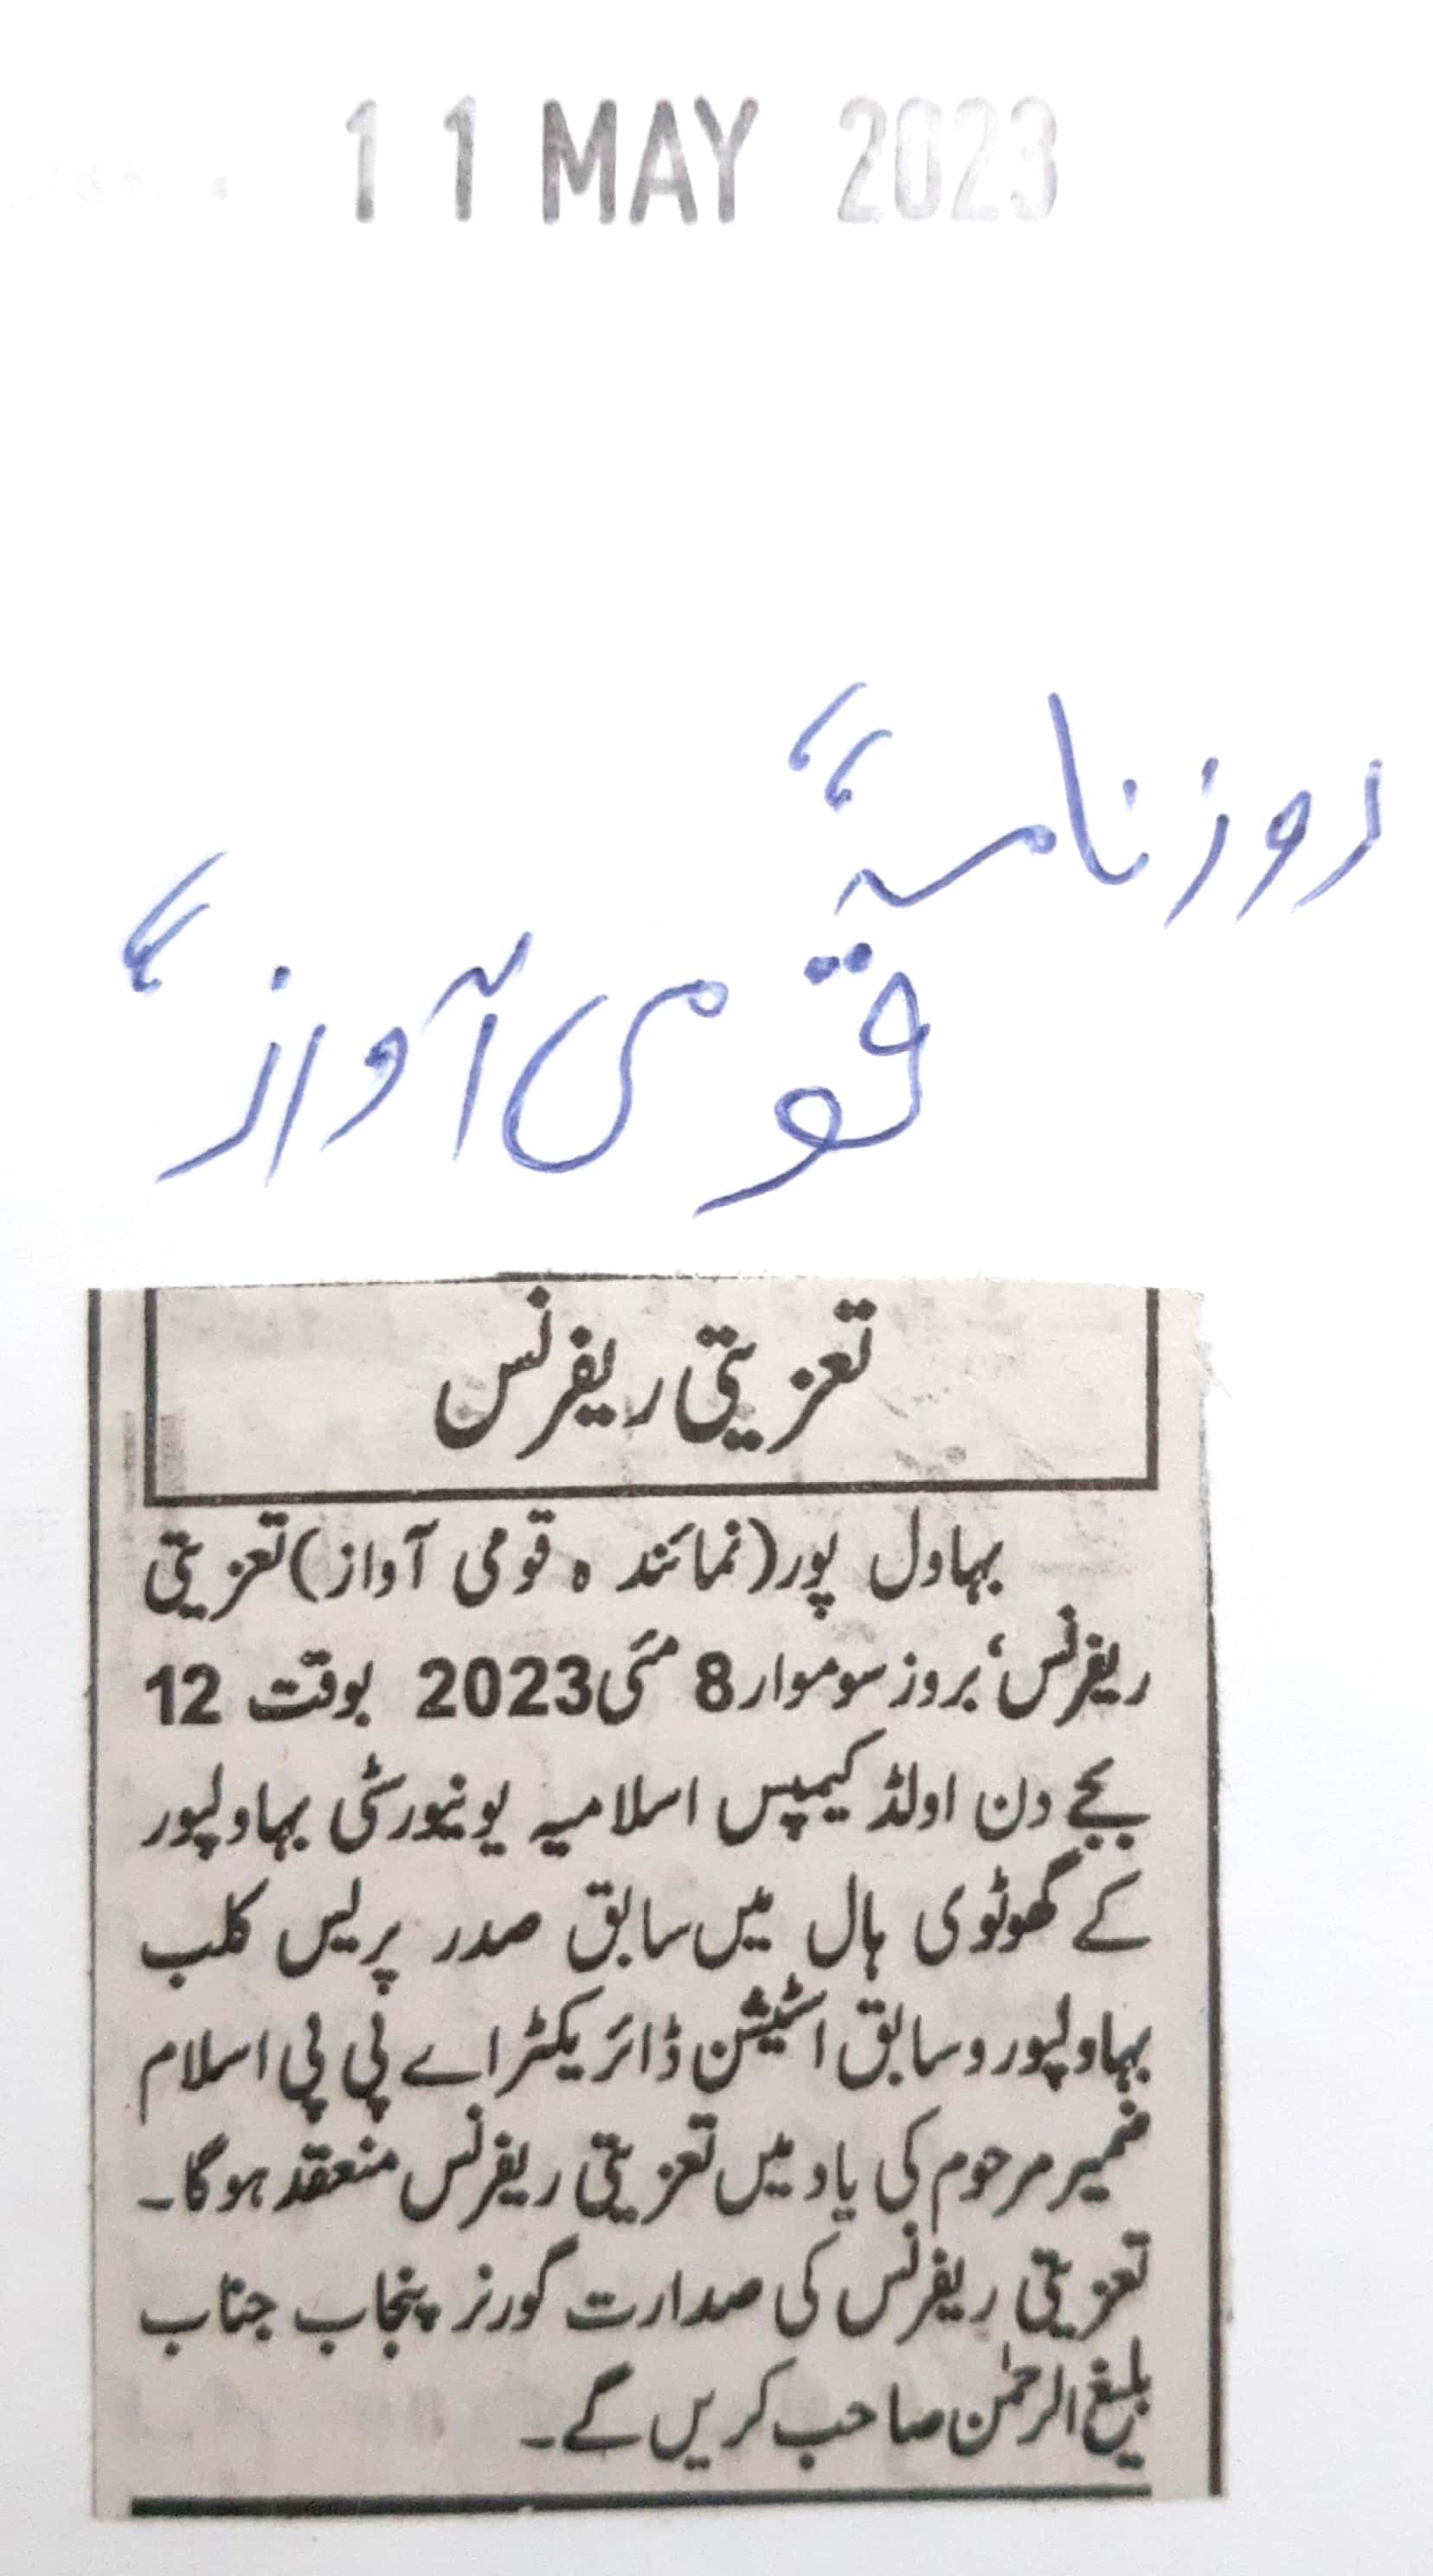 11 MAY 2023
روزنامہ “
قومی آواز “
تعزیتی ریفرنس
بہاول پور (نمائندہ قومی آواز) تعزیتی
ریفرنس‘ بروز سوموار 8 مئی 2023 بوقت 12
بجے دن اولڈ کیمپس اسلامیہ یونیورسٹی بہاولپور
کے گھوٹوی ہال میں سابق صدر پریس کلب
بہاولپور و سابق اسٹیشن ڈائریکٹر اے پی پی اسلام
ضمیر مرحوم کی یاد میں تعزیتی ریفرنس منعقد ہو گا۔
تعزیتی ریفرنس کی صدارت گورنر پنجاب جناب
بلیغ الرحمٰن صاحب کریں گے۔